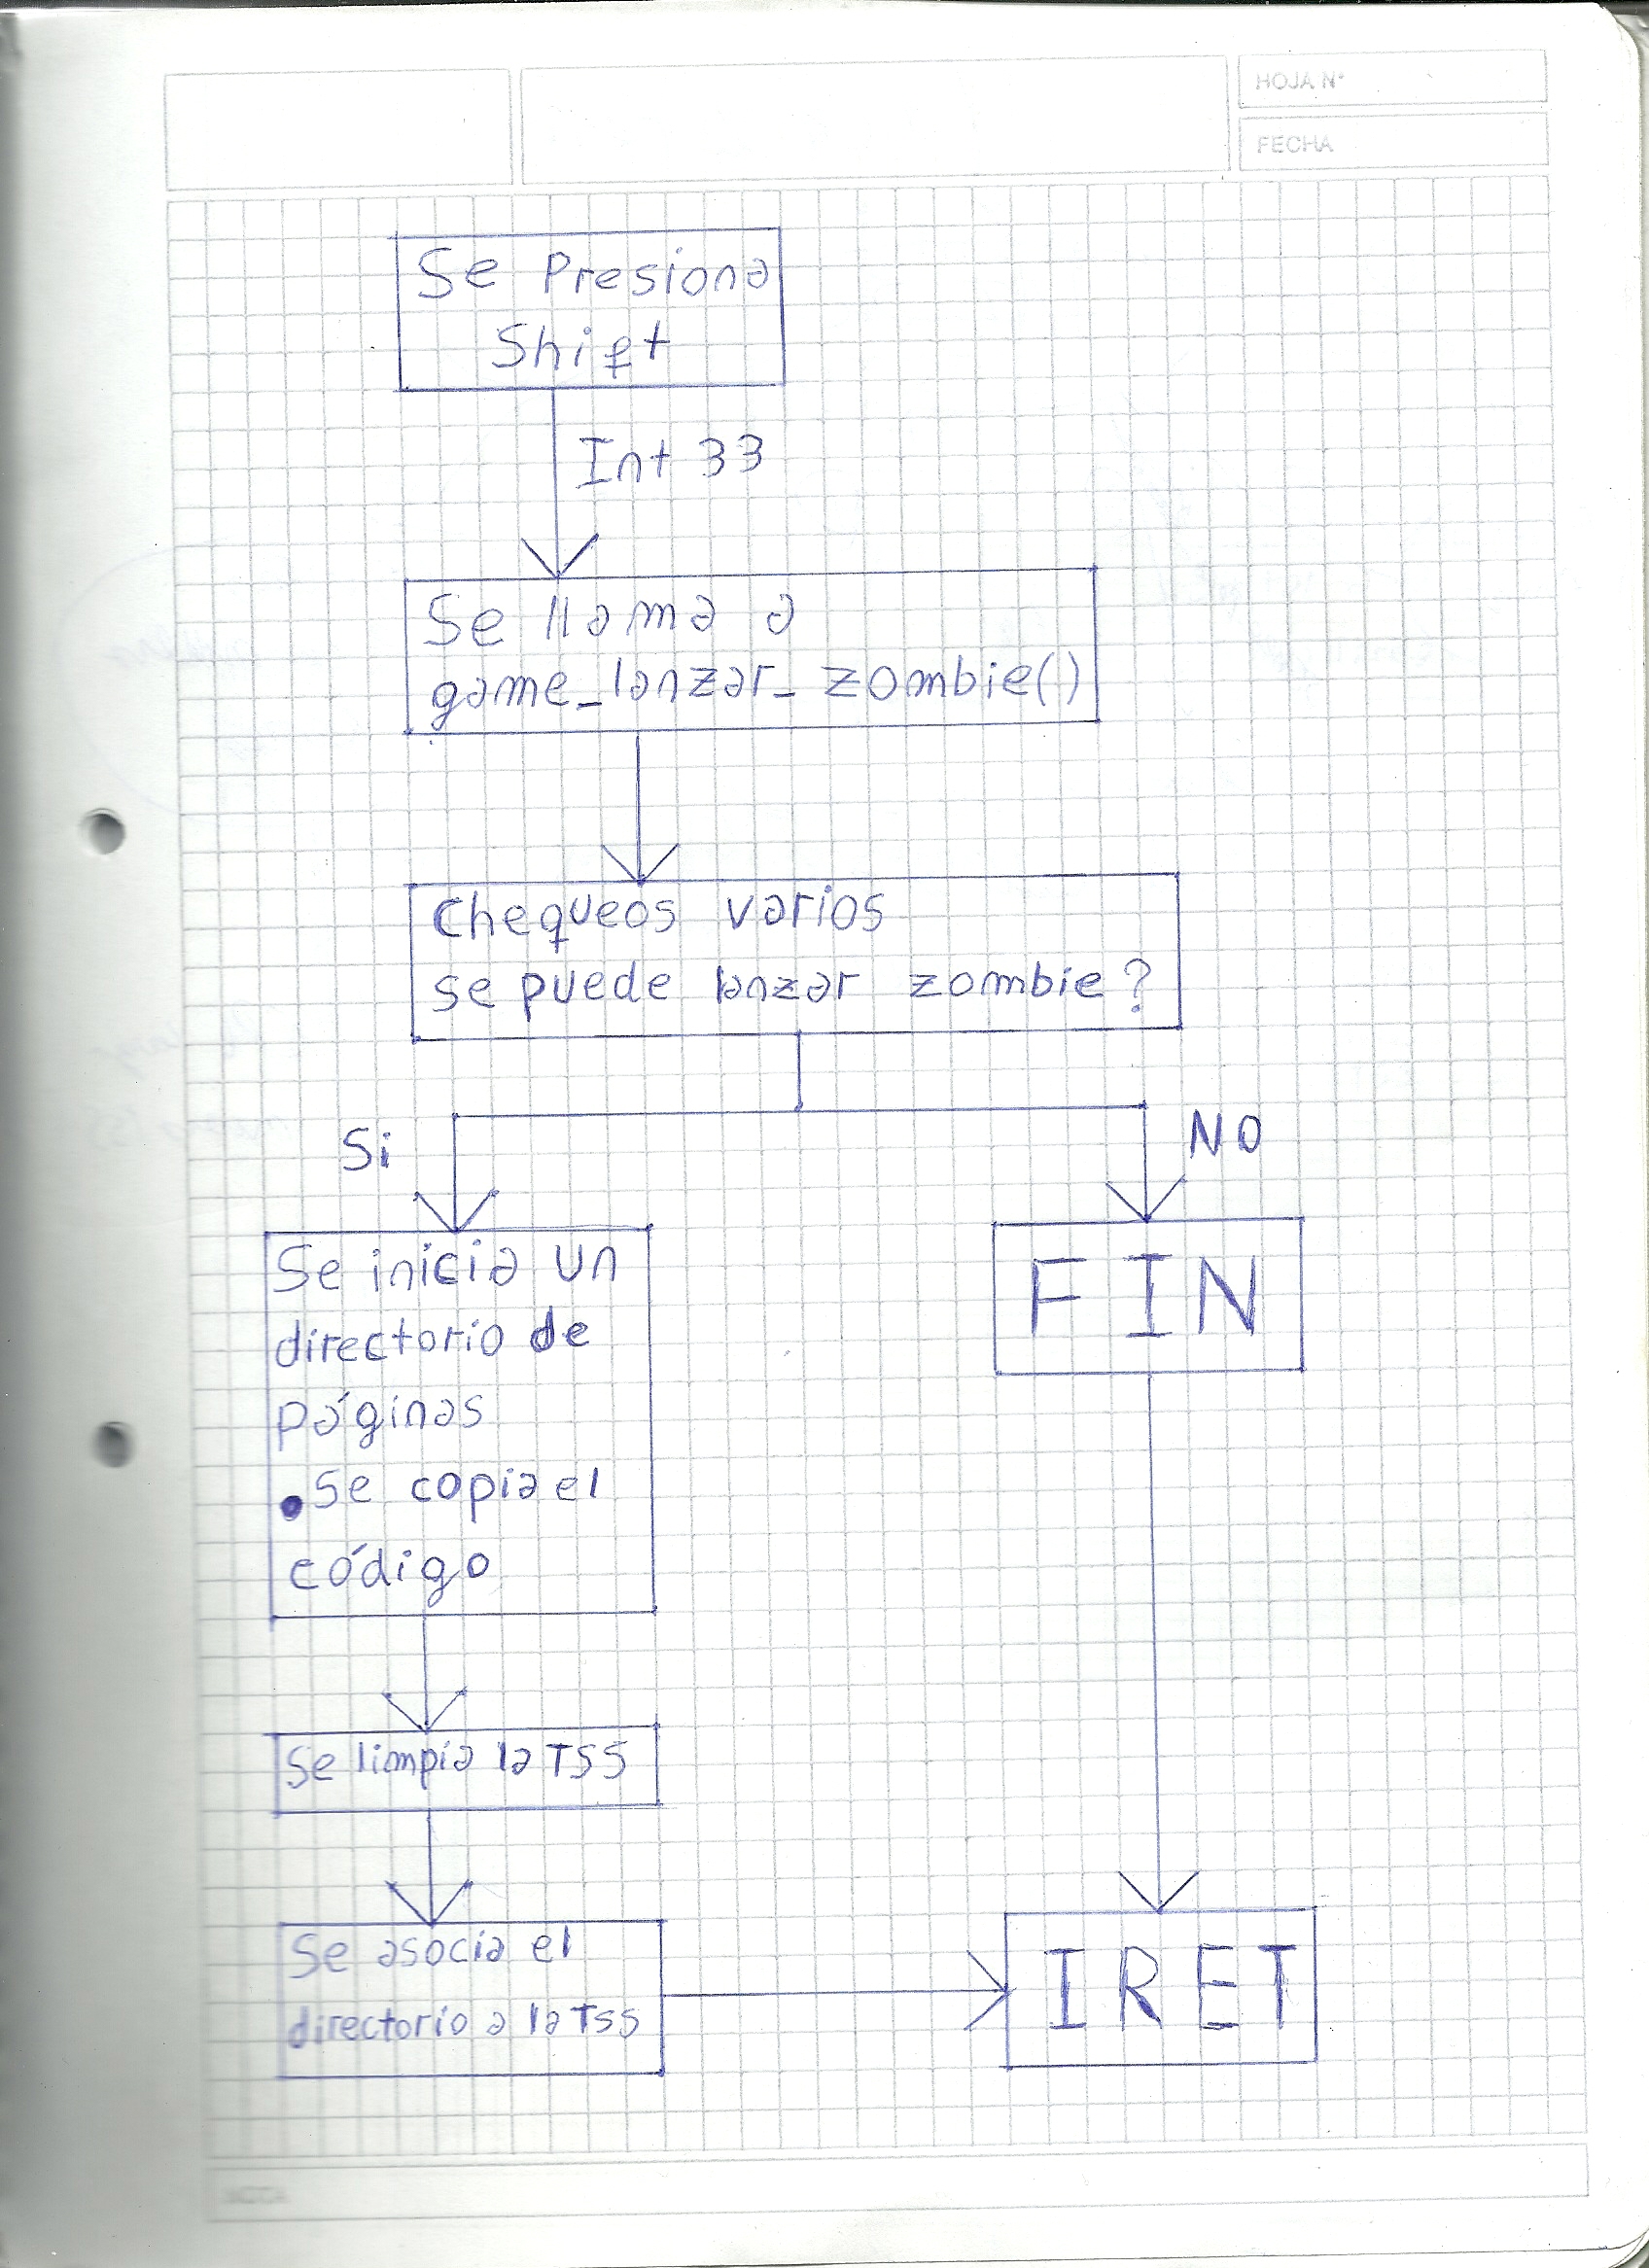 HOJA N°
FECHA
Se Presiona
Shift
Int 33
Se llama a
game_lanzar_zombie()
Chequeos varios
se puede lanzar zombie?
Si
NO
Se inicia un
directorio de
páginas
•Se copia el
código
FIN
Se limpia la TSS
Se asocia el
directorio a la TSS
IRET
NOTA